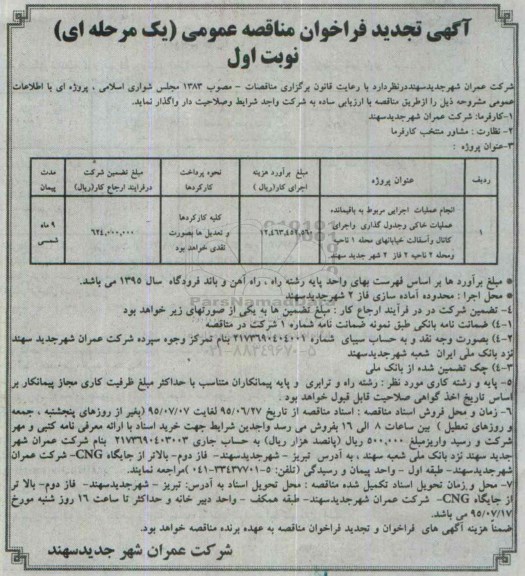 آگهی تجدید فراخوان مناقصه عمومی (یک مرحله ای)
نوبت اول
شرکت عمران شهرجدیدسهنددرنظردارد با رعایت قانون برگزاری مناقصات - مصوب ۱۳۸۳ مجلس شورای اسلامی ، پروژه ای با اطلاعات
عمومی مشروحه ذیل را ازطریق مناقصه با ارزیابی ساده به شرکت واجد شرایط وصلاحیت دار واگذار نماید.
۱-کارفرما: شرکت عمران شهرجدیدسهند
۲- نظارت : مشاور منتخب کارفرما
۳-عنوان پروژه :
ردیف
عنوان پروژه
مبلغ برآورد هزینه اجرای کار(ریال )
نحوه پرداخت کارکردها
مبلغ تضمین شرکت درفرایند ارجاع کار(ریال)
مدت پیمان
۱
انجام عملیات اجرایی مربوط به باقیمانده
عملیات خاکی وجدول گذاری واجرای
کانال وآسفالت خیابانهای محله ۱ ناحیه
ومحله ۲ ناحیه ۲ فاز ۲ شهر جدید سهند
کلیه کارکردها
و تعدیل ها بصورت
نقدی خواهد بود
۶۲۴,۰۰۰,۰۰۰
۹ ماه
شمسی
* مبلغ برآورد ها بر اساس فهرست بهای واحد پایه رشته راه ، راه آهن و باند فرودگاه سال ۱۳۹۵ می باشد.
* محل اجرا : محدوده آماده سازی فاز ۲ شهرجدیدسهند
۴- تضمین شرکت در در فرآیند ارجاع کار : مبلغ تضمین ها به یکی از صورتهای زیر خواهد بود
۴-۱) ضمانت نامه بانکی طبق نمونه ضمانت نامه شماره ۱ شرکت در مناقصه
۴-۲) بصورت وجه نقد و به حساب سیبای شماره ۲۱۷۳۶۹۰۴۰۴۰۰۱ بنام تمرکز وجوه سپرده شرکت عمران شهرجدید سهند
نزد بانک ملی ایران شعبه شهرجدیدسهند
۴-۳) چک تضمین شده از بانک ملی
۵- پایه و رشته کاری مورد نظر : رشته راه و ترابری و پایه پیمانکاران متناسب با حداکثر مبلغ ظرفیت کاری مجاز پیمانکار بر
اساس تاریخ اخذ گواهی صلاحیت قابل قبول خواهد بود :
۶- زمان و محل فروش اسناد مناقصه : اسناد مناقصه از تاریخ ۹۵/۰۶/۲۷ لغایت ۹۵/۰۷/۰۷ (بغیر از روزهای پنجشنبه ، جمعه
و روزهای تعطیل ) بین ساعات ۸ الی ۱۶ بفروش می رسد واجدین شرایط جهت خرید اسناد با ارائه معرفی نامه کتبی و مهر
شرکت و رسید واریزمبلغ ۵۰۰,۰۰۰ ریال (پانصد هزار ریال) به حساب جاری ۲۱۷۳۶۹۰۴۰۳۰۰۳ بنام شرکت عمران شهر
جدید سهند نزد بانک ملی شعبه سهند ، به آدرس تبریز - شهرجدیدسهند- فاز دوم- بالاتر از جایگاه CNG- شرکت عمران
شهرجدیدسهند- طبقه اول - واحد پیمان و رسیدگی (تلفن: ۵-۳۳۴۳۷۷۰۱-۰۴۱ )مراجعه نمایند.
۷- محل و زمان تحویل اسناد تکمیل شده مناقصه : محل تحویل اسناد به آدرس: تبریز - شهرجدیدسهند- فاز دوم- بالا تر
از جایگاه CNG- شرکت عمران شهرجدیدسهند- طبقه همکف - واحد دبیر خانه و حداکثر تا ساعت ۱۶ روز شنبه مورخ
۹۵/۰۷/۱۷ می باشد.
ضمنا هزینه آگهی های فراخوان و تجدید فراخوان مناقصه به عهده برنده مناقصه خواهد بود.
شرکت عمران شهر جدیدسهند